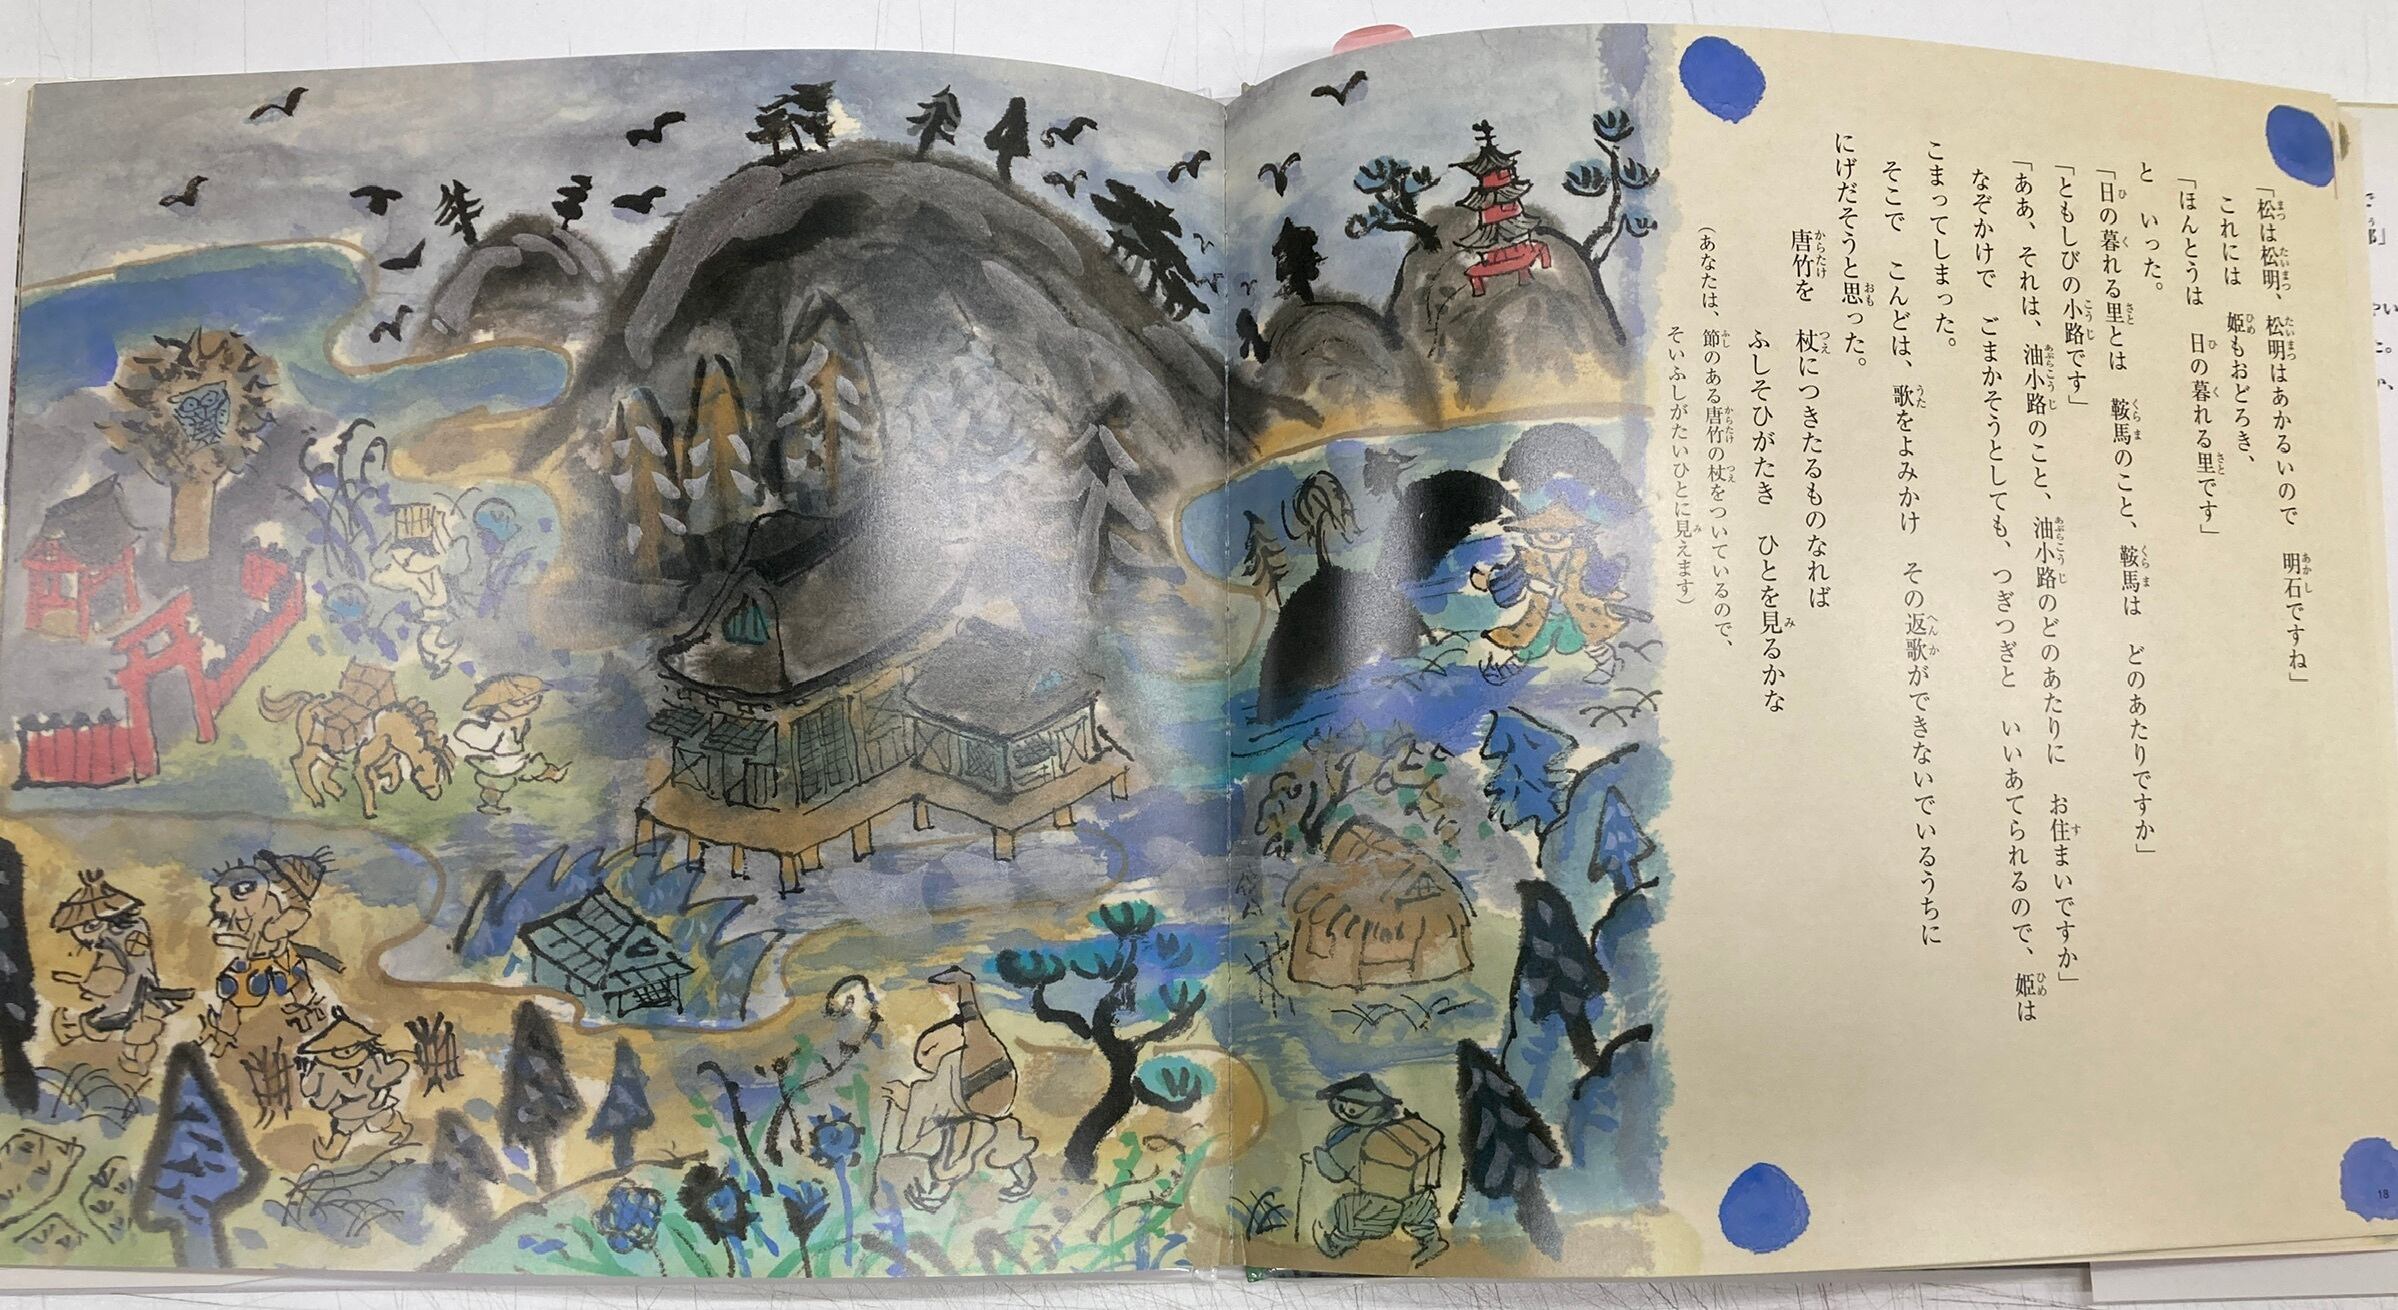 「松は松明、松明はあかるいので　明石ですね」
これには　姫もおどろき、
「ほんとうは　日の暮れる里です」
と　いった。
「日の暮れる里とは　鞍馬のこと、鞍馬は　どのあたりですか」
「ともしびの小路です」
「ああ、それは、油小路のこと、油小路のどのあたりに　お住まいですか」
なぞかけで　ごまかそうとしても、つぎつぎと　いいあてられるので、姫は
こまってしまった。
そこで　こんどは、歌をよみかけ　その返歌ができないでいるうちに
にげだそうと思った。
唐竹を　杖につきたるものなれば
ふしそひがたき　ひとを見るかな
（あなたは、節のある唐竹の杖をついているので、
そいふしがたいひとに見えます）
18